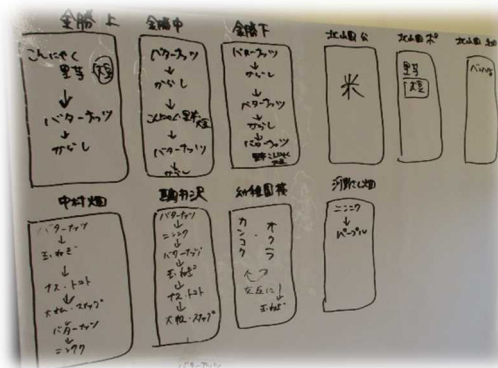 金勝上
こんにゃく
里芋 大豆
↓
バターナッツ
↓
からし
金勝中
バターナッツ
↓
からし
↓
こんにゃく・里芋
大豆
↓
バターナッツ
↓
からし
金勝下
バターナッツ
↓
からし
↓
バターナッツ
↓
からし
↓
バターナッツ
里芋・こんにゃく
大豆
北山田
米
北山田 ポ
里芋
大豆
北山田
中村畑
バターナッツ
↓
玉ねぎ
↓
ナス・トマト
↓
大根・スナップ
バターナッツ
↓
ニンニク
駒井沢
バターナッツ
↓
ニンニク
↓
バターナッツ
↓
玉ねぎ
↓
ナス・トマト
↓
大根・スナップ
幼稚園横
オクラ
カンコク
交互に
↓
玉ねぎ
ニンニク
↓
パープル
バターナッツ